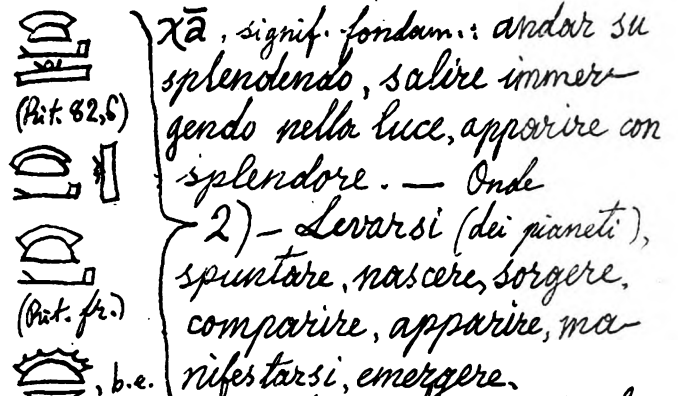 χā, signif. fondam.: andar su
splendendo, salire immer-
(Rit. 82,6) gendo nella luce, apparire con
splendore. — Onde
2) – Levarsi (dei pianeti),
spuntare, nascere, sorgere,
(Rit. fr.) comparire, apparire, ma-
, b.e. nifestarsi, emergere.